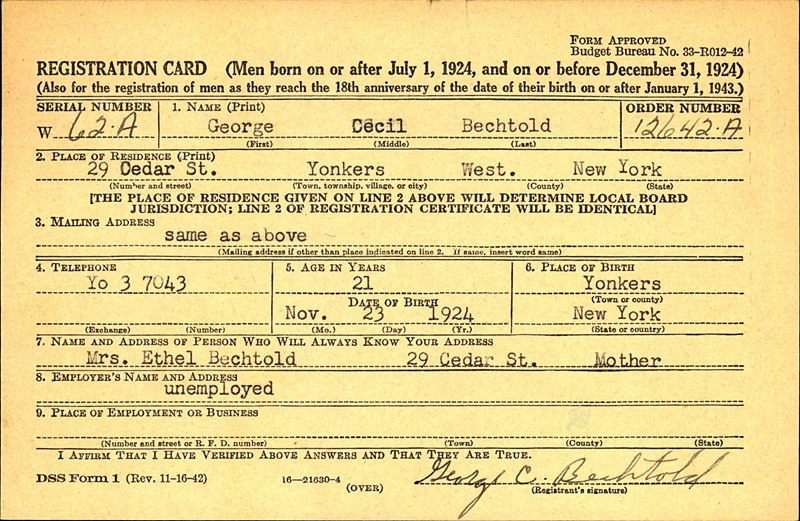 FORM APPROVED
Budget Bureau No. 33-R012-42
REGISTRATION CARD (Men born on or after July 1, 1924, and on or before December 31, 1924)
(Also for the registration of men as they reach the 18th anniversary of the date of their birth on or after January 1, 1943.)
SERIAL NUMBER 1. NAME (Print) ORDER NUMBER
W 62-A George Cecil Bechtold 12642-A
(First) (Middle) (Last)
2. PLACE OF RESIDENCE (Print)
29 Cedar St. Yonkers West. New York
(Number and street) (Town, township, village, or city) (County) (State)
[THE PLACE OF RESIDENCE GIVEN ON LINE 2 ABOVE WILL DETERMINE LOCAL BOARD
JURISDICTION; LINE 2 OF REGISTRATION CERTIFICATE WILL BE IDENTICAL]
3. MAILING ADDRESS
same as above
(Mailing address if other than place indicated on line 2. If same, insert word same)
4. TELEPHONE 5. AGE IN YEARS 6. PLACE OF BIRTH
Yo 3 7043 21 Yonkers
DATE OF BIRTH (Town or county)
Nov. 23 1924 New York
(Exchange) (Number) (Mo.) (Day) (Yr.) (State or country)
7. NAME AND ADDRESS OF PERSON WHO WILL ALWAYS KNOW YOUR ADDRESS
Mrs. Ethel Bechtold 29 Cedar St. Mother
8. EMPLOYER'S NAME AND ADDRESS
unemployed
9. PLACE OF EMPLOYMENT OR BUSINESS
(Number and street or R. F. D. number) (Town) (County) (State)
I AFFIRM THAT I HAVE VERIFIED ABOVE ANSWERS AND THAT THEY ARE TRUE.
DSS Form 1 (Rev. 11-16-42) 16—21630-4 (OVER) George C. Bechtold
(Registrant's signature)